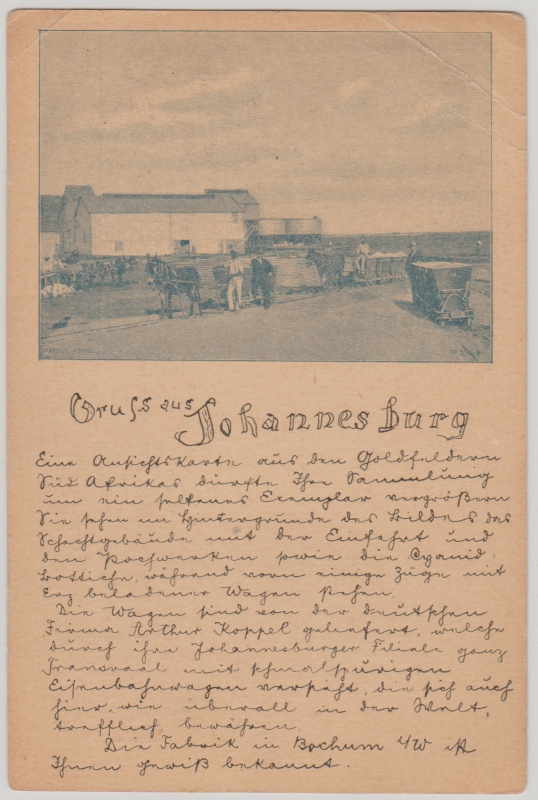 ARTHUR KOPPEL
Gruss aus Johannesburg
Eine Ansichtskarte aus den Goldfeldern
Süd Afrikas dürfte Ihre Sammlung
um ein seltenes Exemplar vergrößern
Sie sehen im Hintergrunde des Bildes das
Schachtgebäude mit der Einfahrt und
den Pochwerken sowie die Cyanid-
bottiche, während vorn einige Züge mit
Erz beladener Wagen stehen.
Die Wagen sind von der deutschen
Firma Arthur Koppel geliefert, welche
durch ihre Johannesburger Filiale ganz
Transvaal mit schmalspurigen
Eisenbahnwagen versieht, die sich auch
hier, wie überall in der Welt,
trefflich bewähren.
Die Fabrik in Bochum i/W ist
Ihnen gewiß bekannt.